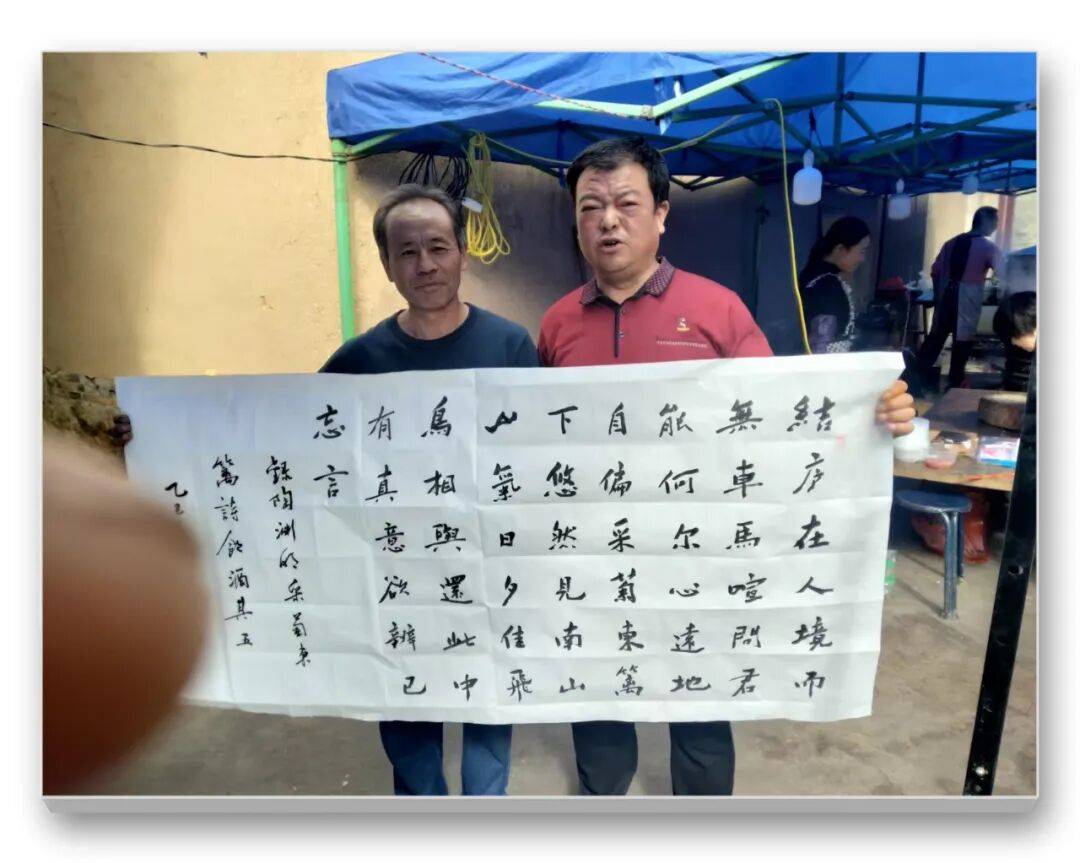 結庐在人境而
無車馬喧問君
能何尔心遠地
自偏采菊東篱
下悠然見南山
山氣日夕佳飛
鳥相與還此中
有真意欲辨已
忘言
録陶渊明采菊東
篱詩飲酒其五
乙巳